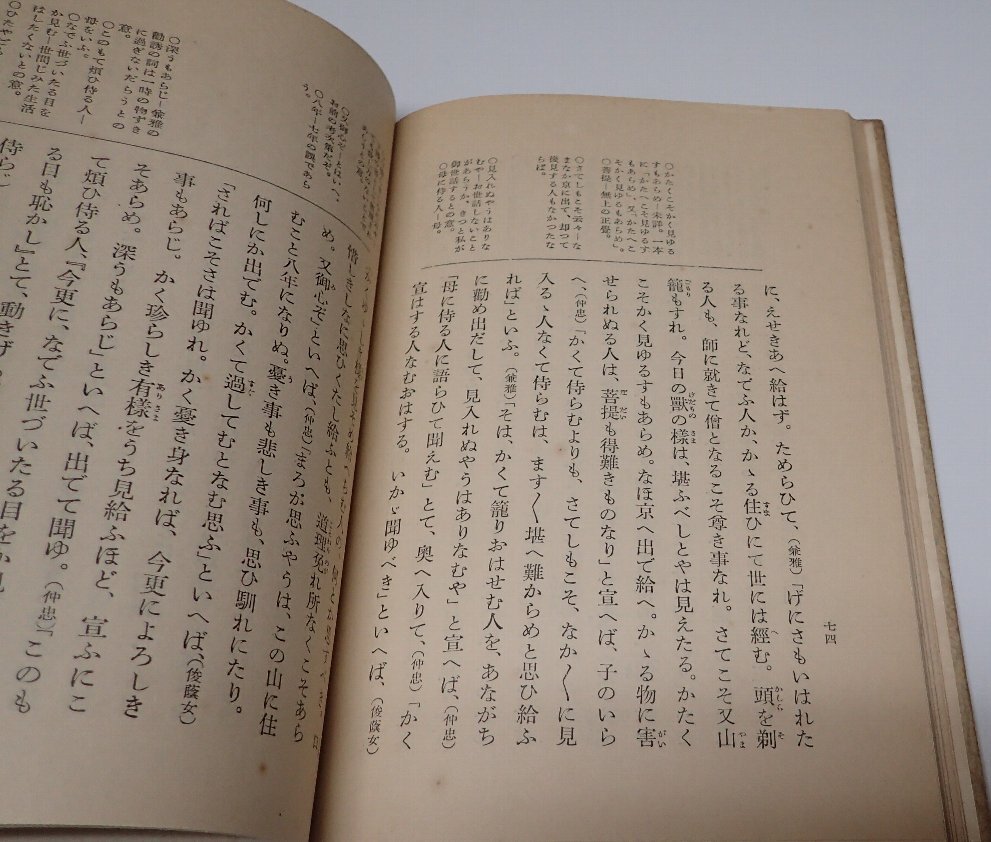 七四
○かたくこそかく見ゆる
すもあらめ―未詳。一本
に「かたへこそ見ゆるす
もあらめ」、又「かたへこ
そかく見ゆるもあらめ」。
○菩提―無上の正覺。
○さてしもこそ云々―な
まなか京に出て、却つて
後見する人もなかつたな
らば。
○見入れぬやうはありな
むや―お世話しないこと
があらうか、きつと私が
御世話するとの意。
○母に侍る人―母。
に、えせきあへ給はず。ためらひて、(兼雅)「げにさもいはれた
る事なれど、なでふ人か、かゝる住ひにて世には經む。頭を剃
る人も、師に就きて僧となるこそ尊き事なれ。さてこそ又山
籠もすれ。今日の獸の樣は、堪ふべしとやは見えたる。かたく
こそかく見ゆるすもあらめ。なほ京へ出で給へ。かゝる物に害
せられぬる人は、菩提も得難きものなり」と宣へば、子のいら
へ、(仲忠)「かくて侍らむよりも、さてしもこそ、なか〳〵に見
入るゝ人なくて侍らむは、ます〳〵堪へ難からめと思ひ給ふ
れば」といふ。(兼雅)「そは、かくて籠りおはせむ人を、あながち
に勸め出だして、見入れぬやうはありなむや」と宣へば、(仲忠)
「母に侍る人に語らひて聞えむ」とて、奧へ入りて、(仲忠)「かく
宣はする人なむおはする。いかゞ聞ゆべき」といへば、(俊蔭女)
○又御心ぞ―とはいへ、
お前の考次第だぞ。
○八年―七年の誤であら
う。
○深うもあらじ―兼雅の
勸誘の詞は一時の物ずき
に過ぎないだらうとの
意。
○とのもて煩ひ侍る人―
母をいふ。
○なでふ世づいたる目を
か見む―世間じみた生活
はしたくないとの意。
惜しきしなに思ひくたし給ふとも、道理免れ所なくこそあら
め。又御心ぞ」といへば、(仲忠)「まろが思ふやうは、この山に住
むこと八年になりぬ。憂き事も悲しき事も、思ひ馴れにたり。
何しにか出でむ。かくて過してむとなむ思ふ」といへば、(俊蔭女)
「さればこそさは聞ゆれ。かく憂き身なれば、今更によろしき
事もあらじ。かく珍らしき有樣をうち見給ふほど、宣ふにこ
そあらめ。深うもあらじ」といへば、出でて聞ゆ。(仲忠)「このも
て煩ひ侍る人、『今更に、なでふ世づいたる目をか見
る目も恥かし』とて、動きげ
侍らじ